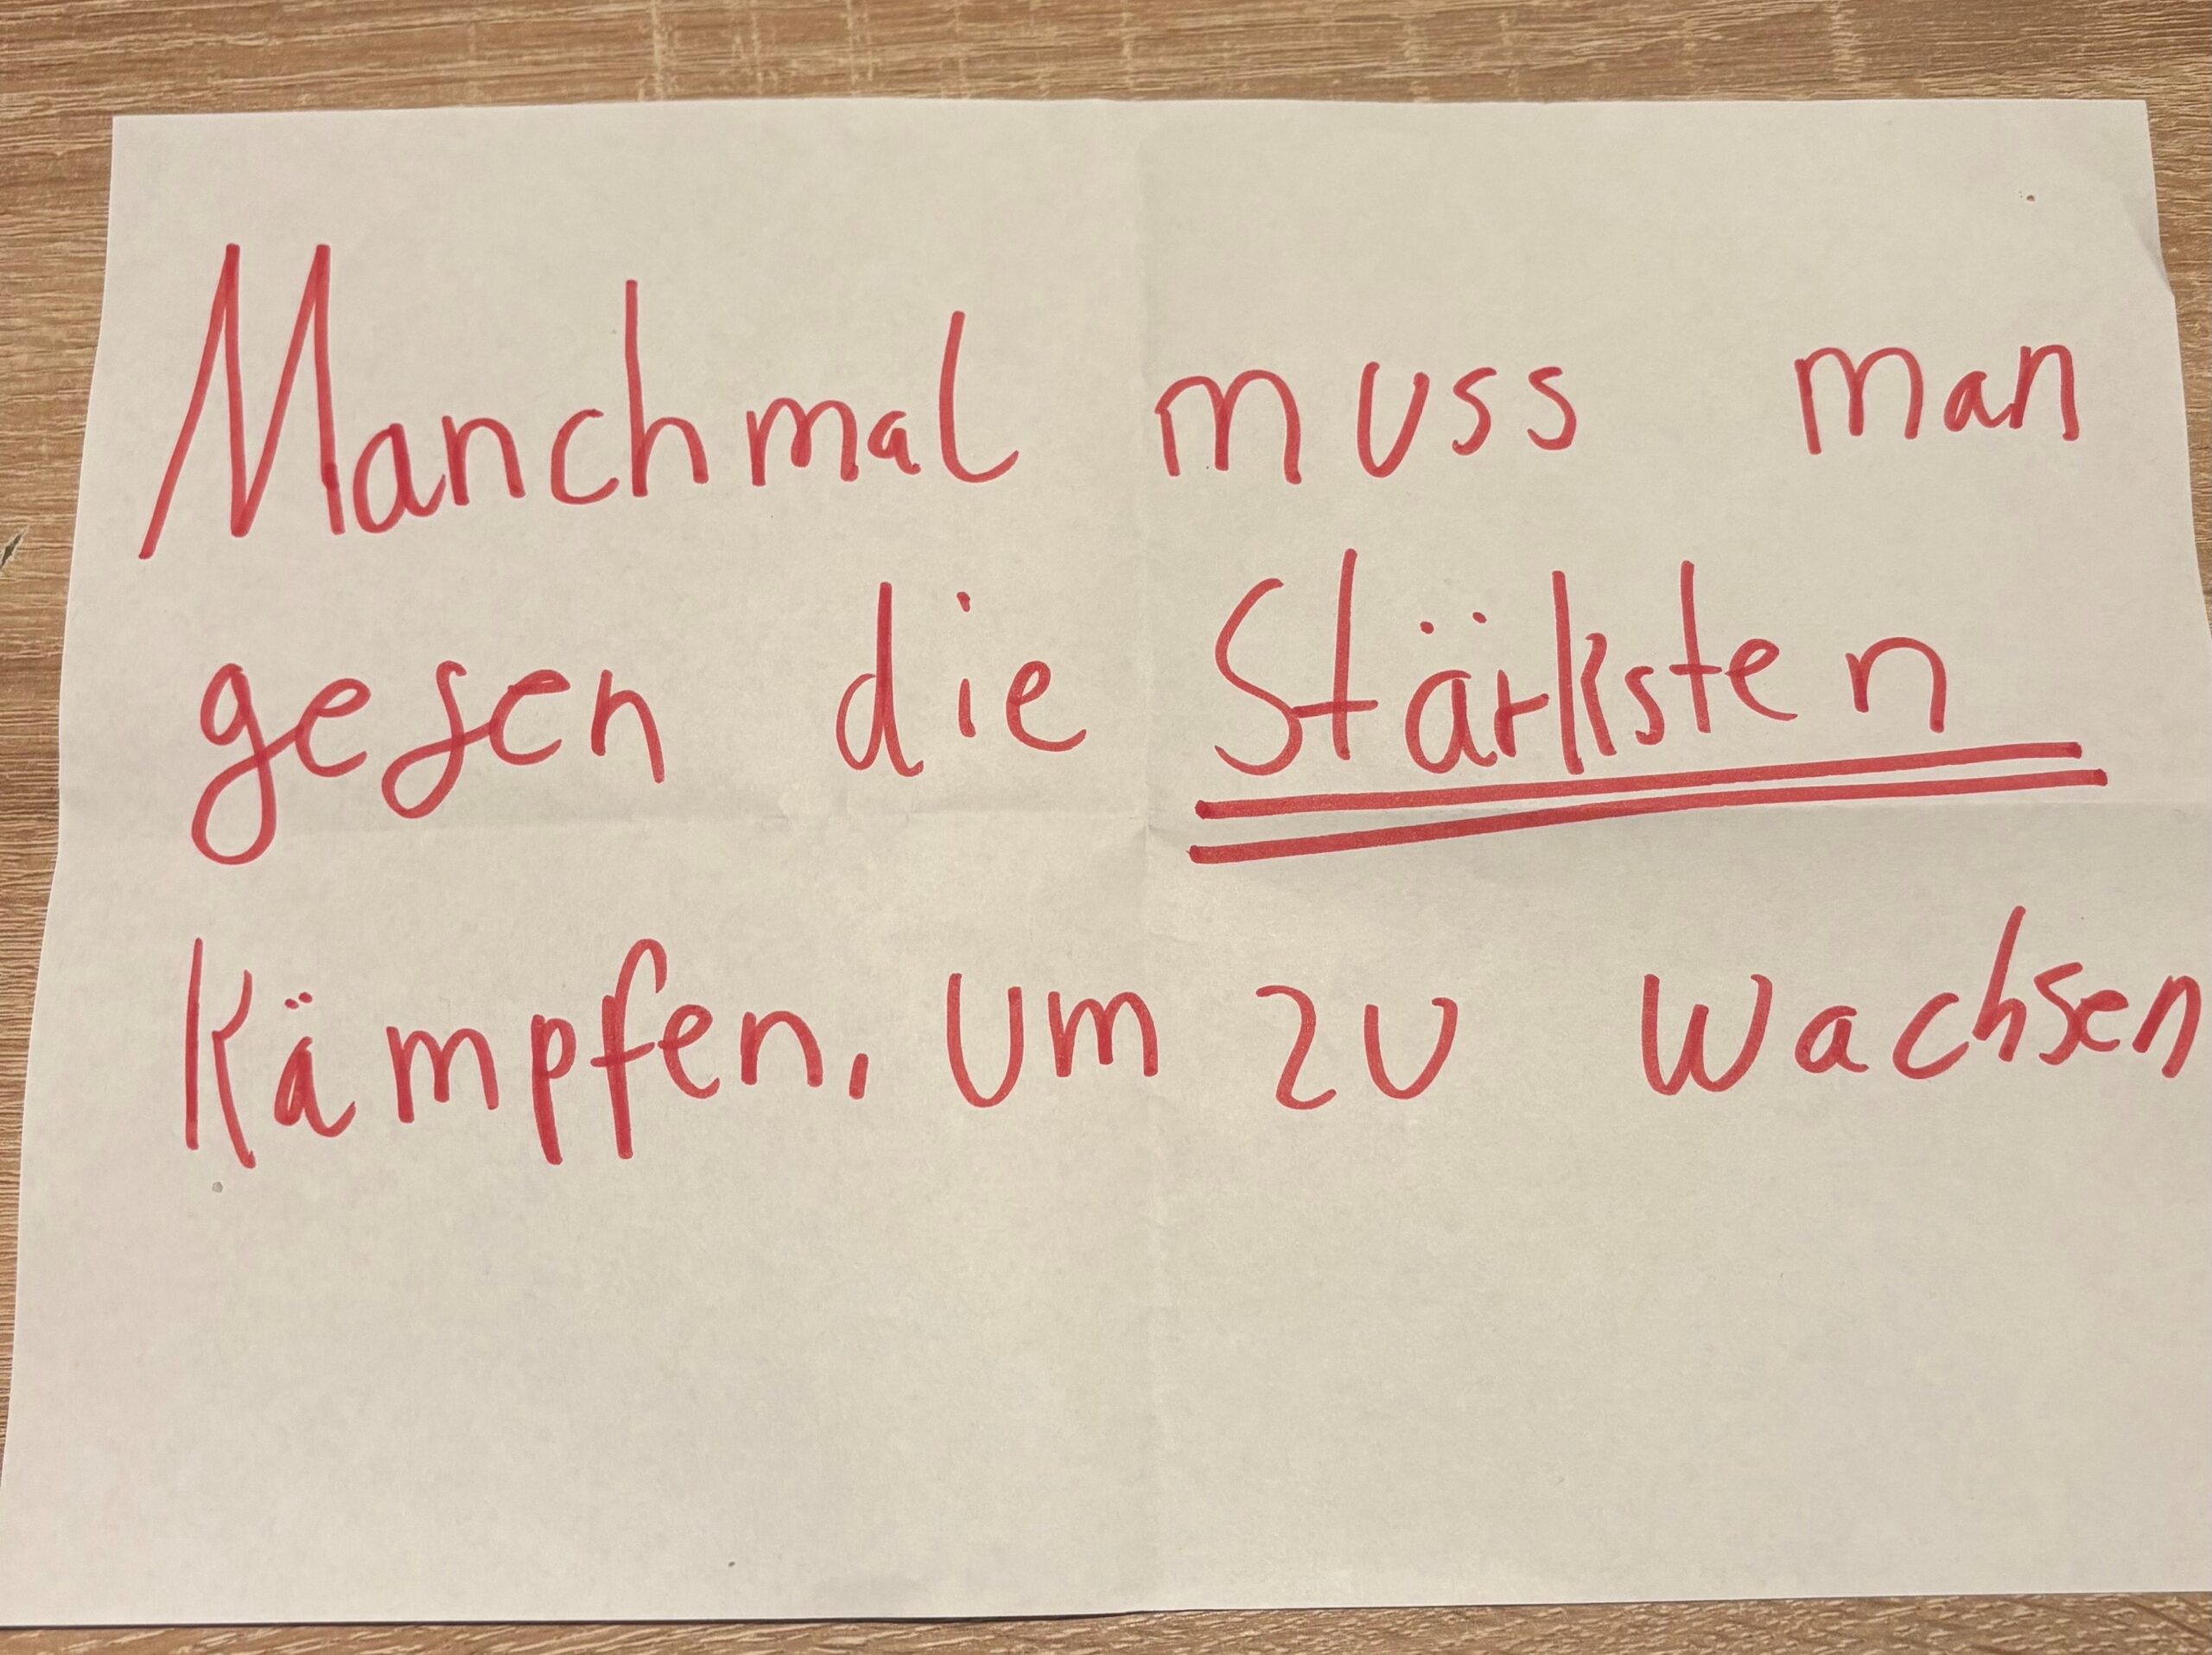 Manchmal muss man
gegen die Stärksten
Kämpfen, um zu wachsen